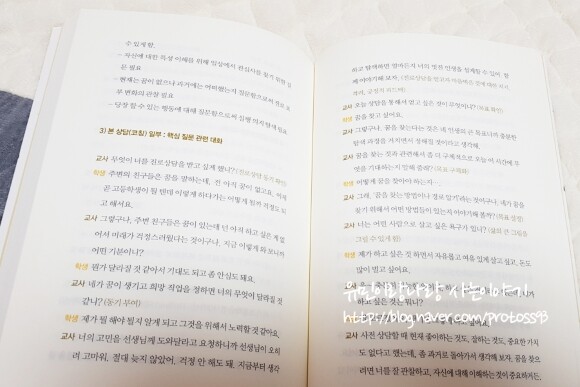 수 있게 함.
– 자신에 대한 특성 이해를 위해 일상에서 관심사를 찾기 위한 질
문 필요
– 현재는 꿈이 없으나 과거에는 어떠했는지 질문함으로써 진로 요
부 변화의 관찰 필요
– 당장 할 수 있는 행동에 대해 질문함으로써 실행 의지 탐색 필요
3) 본 상담(코칭) 일부 : 핵심 질문 관련 대화
교사 무엇이 너를 진로상담을 받고 싶게 했니? (진로 상담 동기 파악)
학생 주변의 친구들은 꿈을 말하는데, 전 아직 꿈이 없고요, 이제
곧 고등학생이 될 텐데 이렇게 하다가는 이렇게 될까 걱정도 되
고 해서요.
교사 그렇구나, 주변 친구들은 꿈이 있는데 넌 아직 하고 싶은 게 없
어서 미래가 걱정스러웠다는 것이구나. 지금 이렇게 와 보니까
어떤 기분이니?
학생 뭔가 달라질 것 같아서 기대도 되고 좀 안심도 돼요.
교사 네가 꿈이 생기고 희망 직업을 정하면 너의 무엇이 달라질 것
같니? (동기 부여)
학생 제가 뭘 해야 될지 알게 되고 그것을 위해서 노력할 것 같아요.
교사 너의 고민을 선생님께 도와달라고 요청하니까 선생님이 오히
려 고마워. 절대 늦지 않았어, 걱정 안 해도 돼. 지금부터 생각
하고 탐색하면 얼마든지 너의 멋진 인생을 설계할 수 있어. 함
께 이야기해 보자.
교사 오늘 상담을 통해서 얻고 싶은 것이 무엇이니? (목표 확인)
학생 꿈을 찾고 싶어요.
교사 그렇구나, 꿈을 찾는다는 것은 네 인생의 큰 목표니까 충분한
탐색 과정을 거치면서 정해질 것이라고 생각해.
교사 꿈을 찾는 것과 관련해서 좀 더 구체적으로 오늘 이 시간에 무
엇을 기대하는지 말해 줄래? (목표 구체화)
학생 어떻게 꿈을 찾아야 하는지….
교사 그래, '꿈을 찾는 방법이나 진로 알기'라는 것이구나. 네가 꿈을
찾기 위해서 어떤 방법들이 있는지 이야기해 볼까? (목표 설정)
교사 너는 어떤 사람으로 살고 싶은 욕구가 있니?
그림 수 있게 함)
학생 제가 하고 싶은 것 하면서 자유롭고 여유 있게 살고 싶고, 돈도
많이 벌고 싶어요.
교사
학생
교사 사전 상담할 때 현재 좋아하는 것도, 잘하는 것도, 중요한 가치
도 없다고 했는데, 좀 과거로 돌아가서 생각해 보자, 꿈을 정하
려면 너를 잘 관찰하고, 자신에 대해 이해하는 것이 중요하거든,
유리이랑나랑 사는 이야기
http://blog.naver.com/protoss93